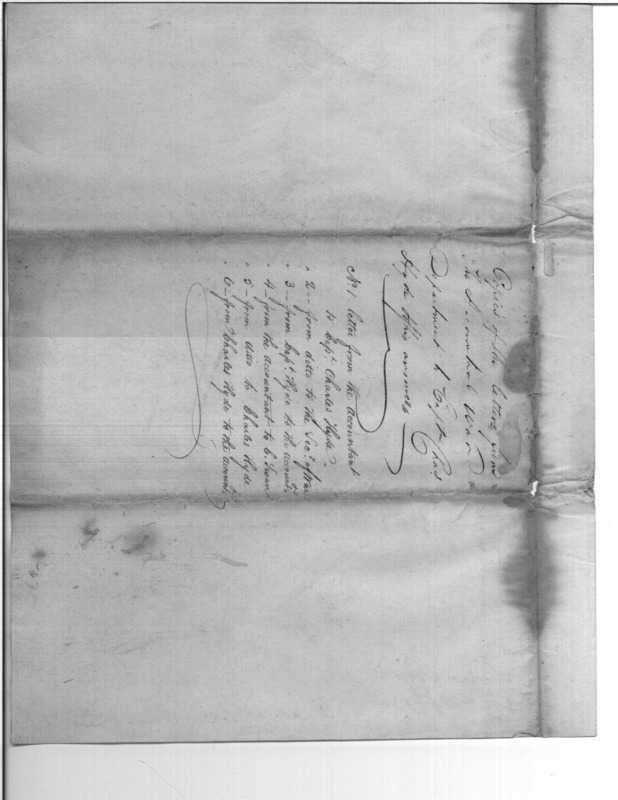 Copies of the letters from
the Accountant War
Department to Capt. Chas
Hyde & his answers
No. 1 letter from the Accountant
to Capt. Charles Hyde
" 2 – from ditto to the Secy. of War
" 3 – from Capt. Hyde to the Accountt.
" 4 – from the Accountant to C. Swan
" 5 – from ditto to Charles Hyde
" 6 – from Charles Hyde to the Accountt.